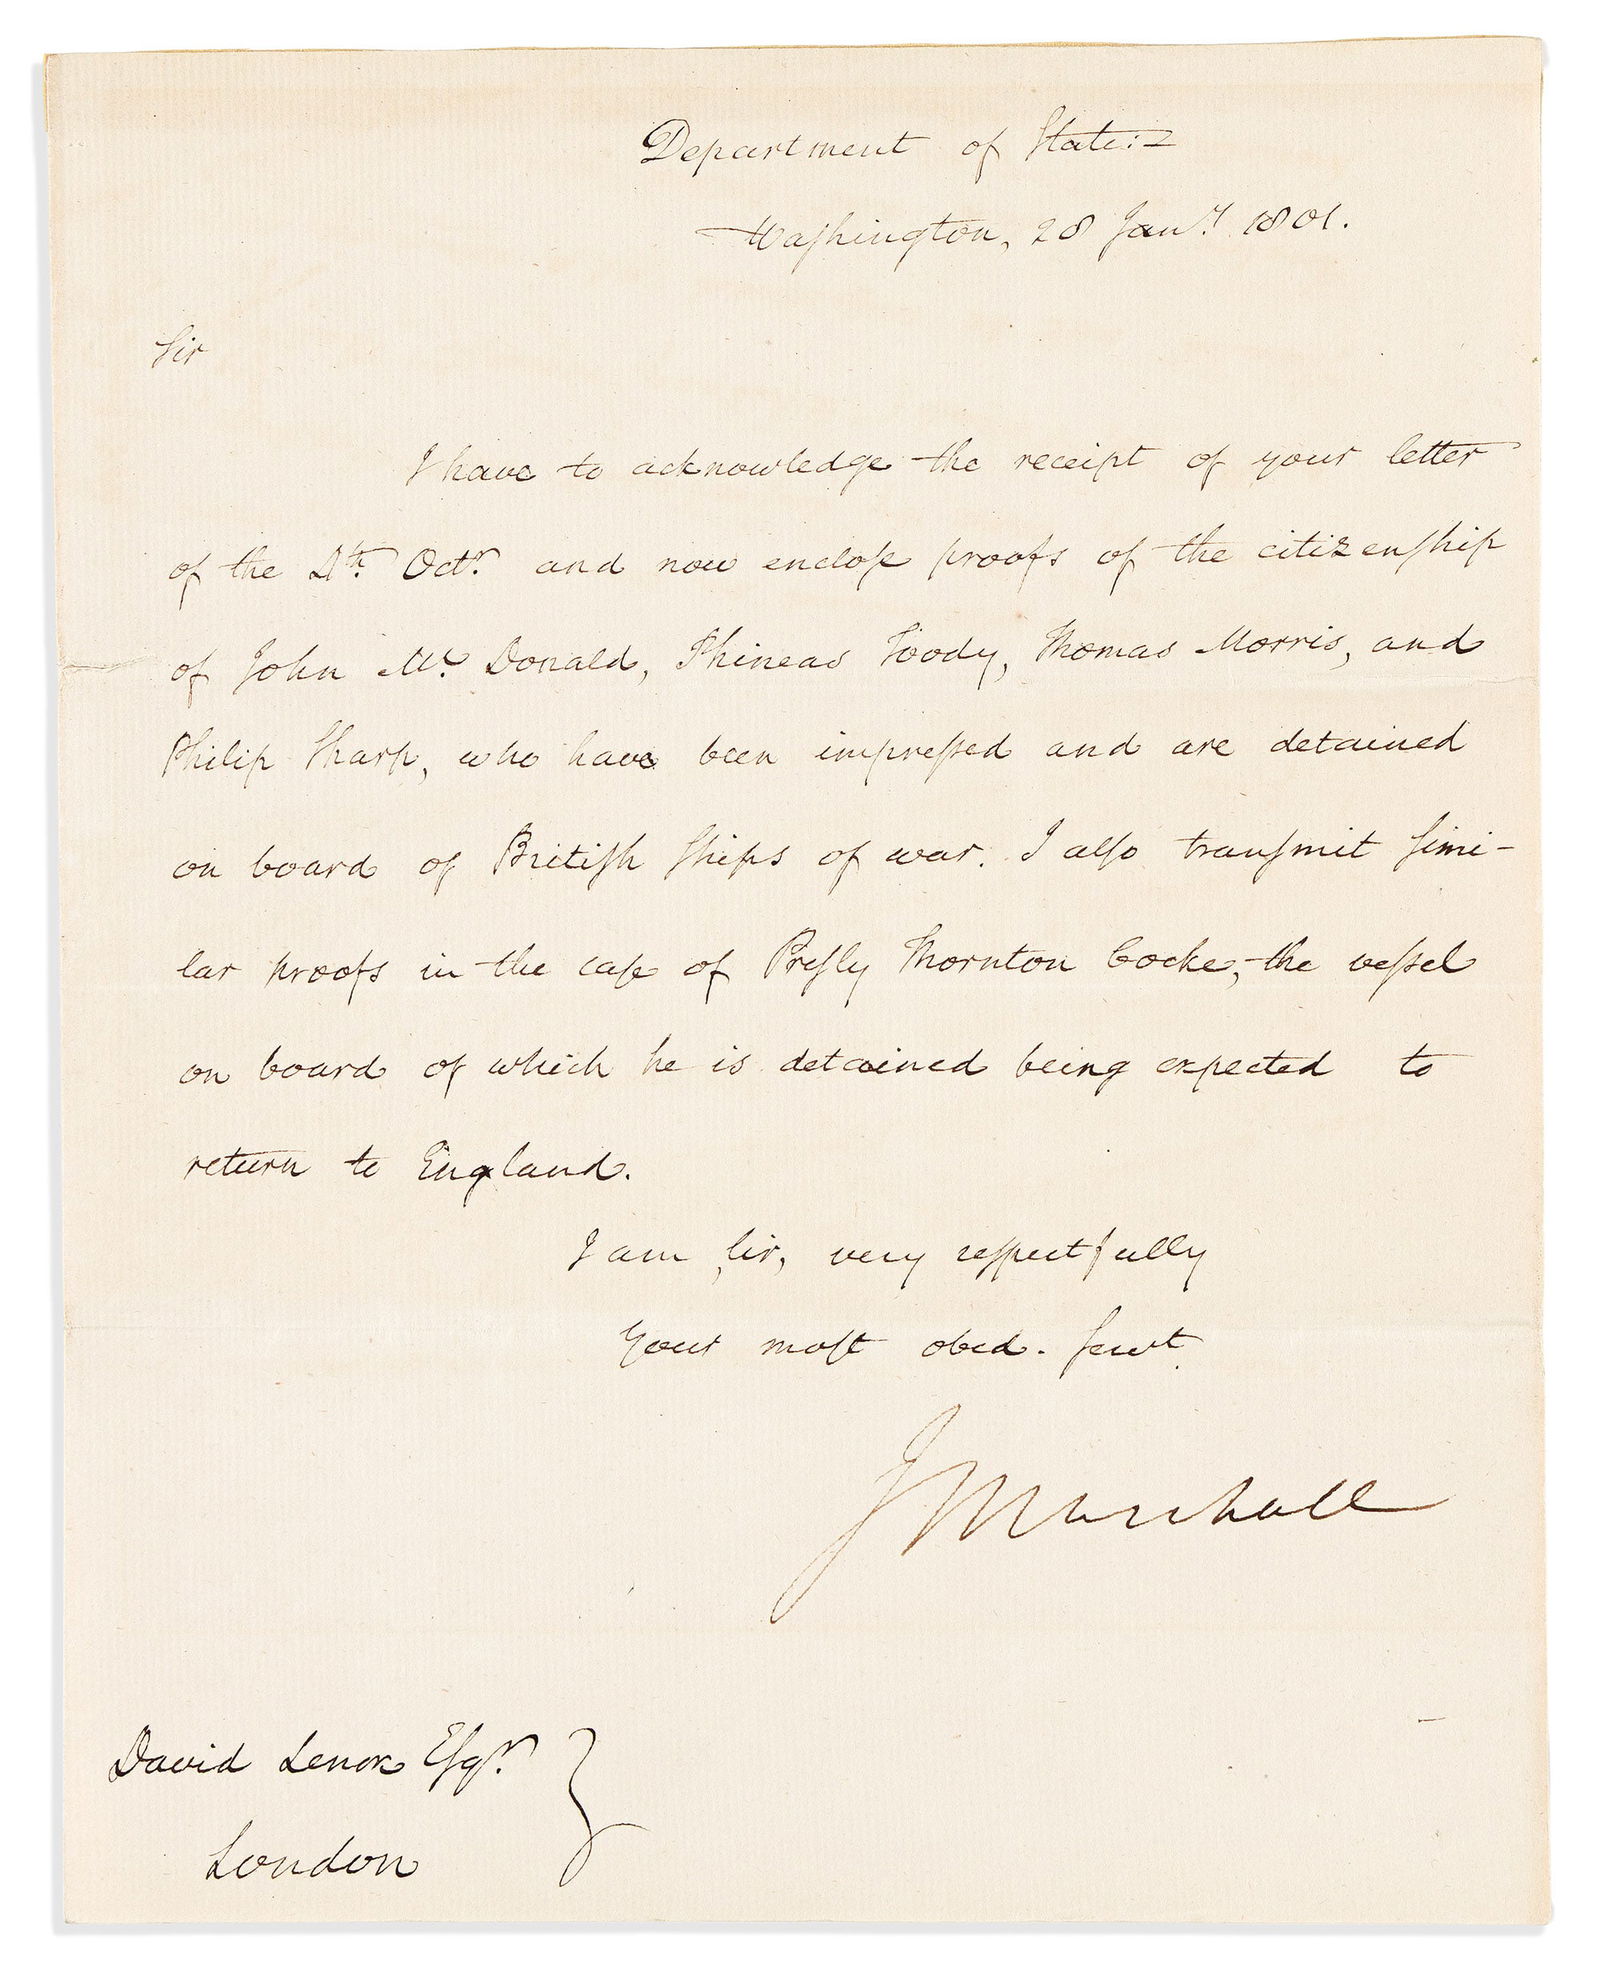 Department of State:=
Washington, 28 Jany. 1801.
Sir
I have to acknowledge the receipt of your letter
of the 4th. Octr. and now enclose proofs of the citizenship
of John Mc. Donald, Phineas Toody, Thomas Morris, and
Philip Sharp, who have been impressed and are detained
on board of British Ships of war. I also transmit simi-
lar proofs in the case of Presly Thornton Cocke, the vessel
on board of which he is detained being expected to
return to England.
I am Sir, very respectfully
Your most obed. servt.
J Marshall
David Lenox Esqr.
London